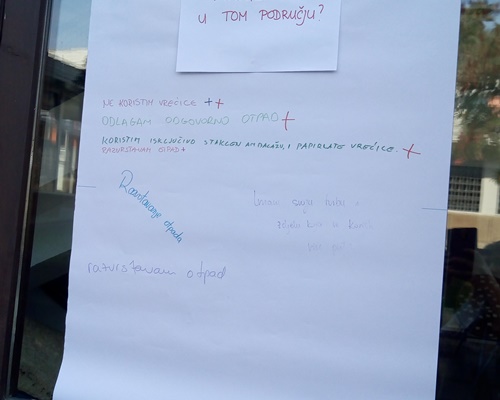 U TOM PODRUČJU?
NE KORISTIM VREĆICE ++
ODLAGAM ODGOVORNO OTPAD +
KORISTIM ISKLJUČIVO STAKLENU AMBALAŽU, I PAPIRNATE VREĆICE. +
RAZVRSTAVAM OTPAD +
Razvrstavanje otpada
razvrstavam otpad